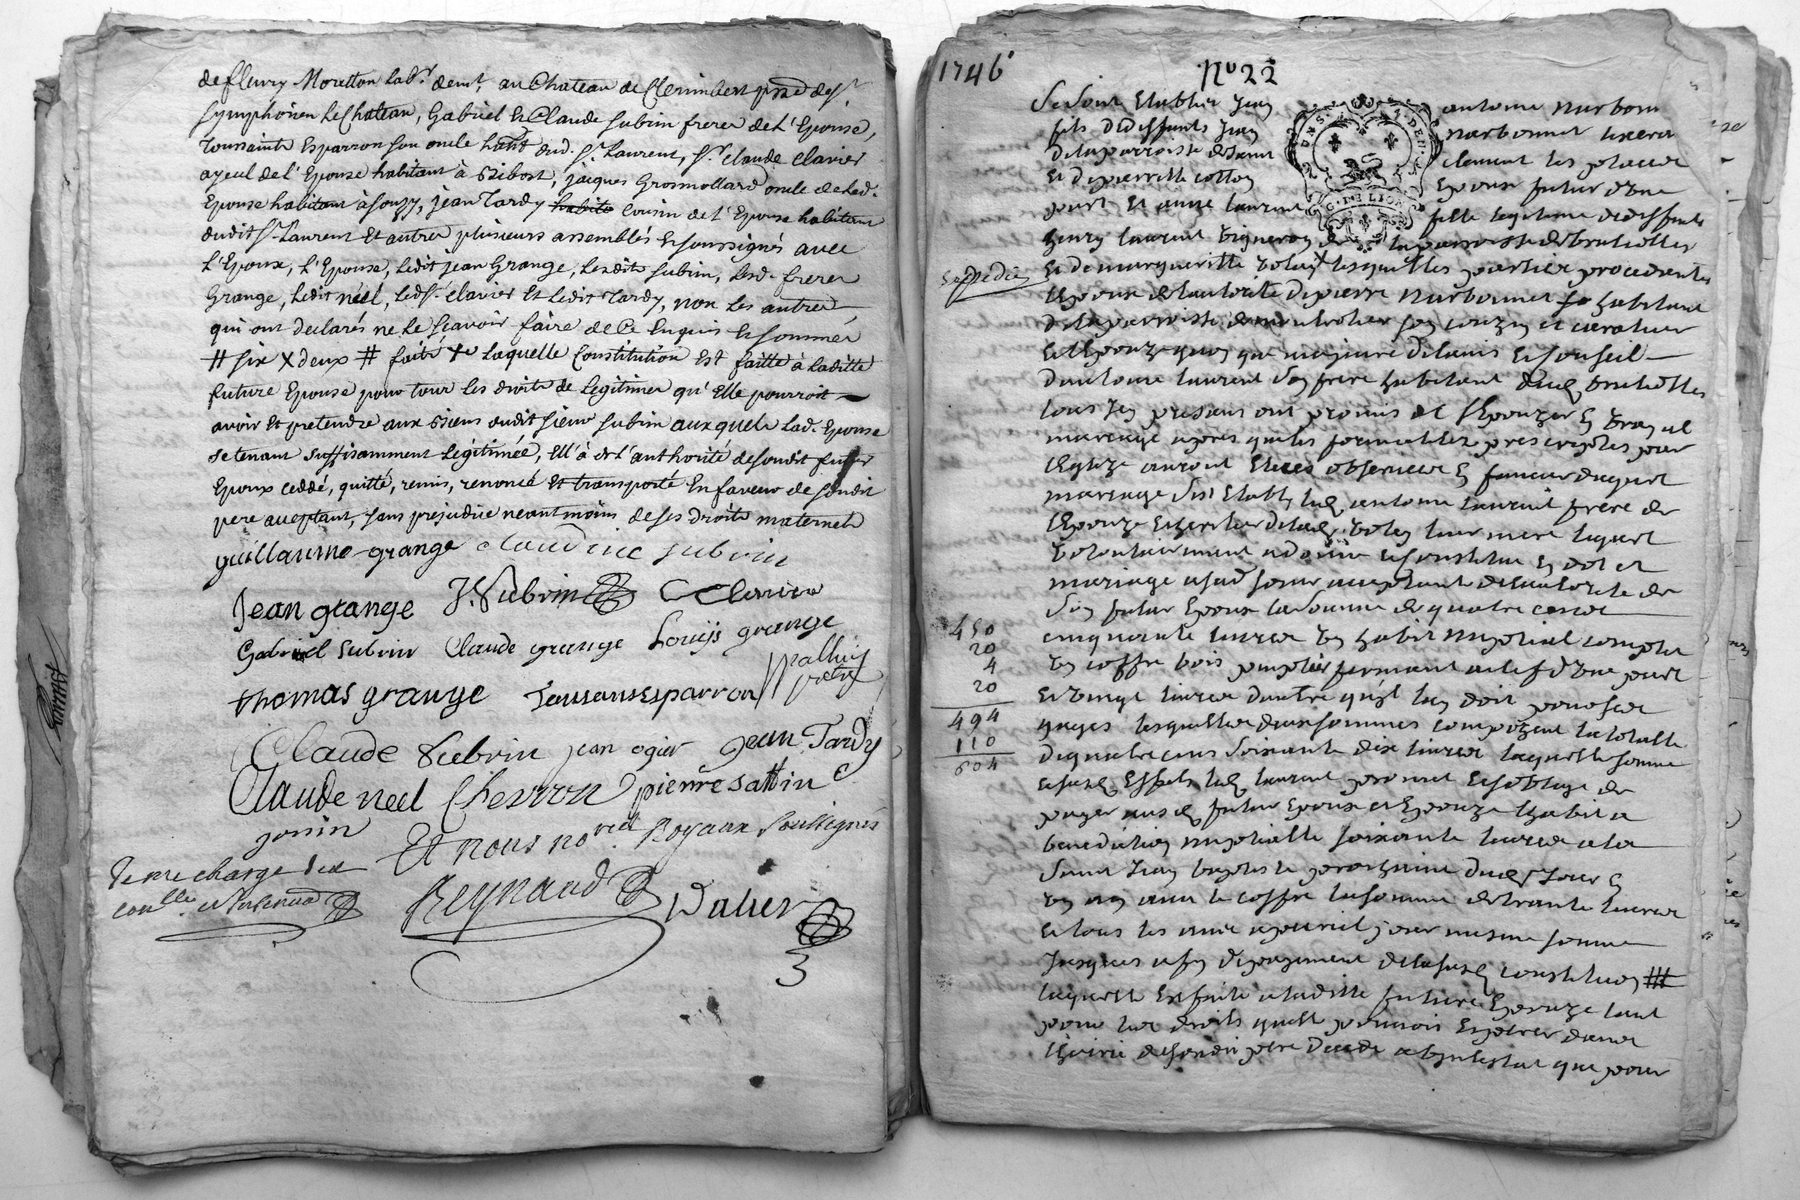 de fleury Moretton Lab.r dem.t au Chateau de Clerimbert p.sse de S.t
Symphorien Le Chateau, Gabriel & Claude Subrin freres de L'Epouse,
Toussainte Esparron son oncle hab.t dud. S.t Laurent, S.r Claude Clavier
ayeul de l'Epouse habitant à Bibost, jacques Grosmollard oncle de Lad.
Epouse habitant à Souzy, jean Tardy habite Cousin de l'Epouse habitant
dudit S.t Laurent Et autres plusieurs assemblés & soussignés avec
L'Epoux, L'Epouse, Ledit jean Grange, Lesdits Subrin, Lesd. freres
Grange, Ledit néel, Led. S.r Clavier Et Ledit Tardy, non les autres
qui ont declarés ne le scavoir faire de ce Enquis & sommés
# six X deux # faité Laquelle Constitution Est faitte à Laditte
future Epouse pour tous les droits de Legitimes qu'Elle pourroit
avoir Et pretendre aux Biens dudit sieur Subrin auxquels Lad. Epouse
se tenant suffisamment Légitimée, Ell'à de L'authorité de sondit futur
Epoux ceddé, quitté, remis, renoncé Et transporté En faveur de sondit
pere acceptant, sans prejudice neantmoins de ses droits maternels
guillaume grange claudine subrin
Jean grange J. Subrin C Clavier
Gabriel Subrin Claude grange Louijs grange
thomas grange Tousans Esparron
Claude Subrin jean ogier Jean Tardy
Claude neel Chesnon pierre sattin
jonin
Et nous no.res Royaux soussignés
Reynaud
3
1746
N.o 22
Se sont Etablis Jean antoine Narbonne
fils de deffunts Jean Narbonnet
de la parroisse de Saint Clement les places
Et de pierrette Epoux futur d'une
part Et anne laurent fille legitime de deffunts
henry laurent Vigneron de la parroisse de brulliolles
Et de margueritte lesquelles parties procedantes
Expedié
l'Epoux de l'autorité de pierre Narbonnet habitant
de la parroisse de montrotier son couzin et curateur
et l'Epouze quoy que majeure de l'avis & Conseil
d'antoine laurent son frere habitant dud. brulliolles
tous Icy presans ont promis de s'Epouzer En vray et
mariage apres que les formalittes prescriptes par
l'Eglize auront Etées observées En faveur duquel
mariage s'est Estably led. antoine laurent frere de
l'Epouze & heritier de lad. leur mere lequel
volontairement a donné & constitue En dot et
mariage a sad. soeur acceptante de l'autorité de
son futur Epoux la somme de quatre cents
450
cinquante livres un habit nuptial complet
20
un coffre bois fermant a clef d'une part
4
Et vingt livres d'autre
20
gages lesquelles deux sommes composent la totalle
494
de quatre cens soixante dix livres laquelle somme
110
604
& sud. Effets led. laurent promet & s'oblige de
payer aux d. futur Epoux et Epouze l'habit a
benediction nuptialle soixante livres a la
Saint Jean baptiste prochaine
un an avec le coffre la somme de trante livres
Et tous les annés a pareil jour mesme somme
Jusques a fin de payement de la susd. constitution #
laquelle Est faite a laditte future Epouze tant
pour les droits quelle pourroit Esperer dans
l'hoirie de sondit pere decedé abintestat que pour